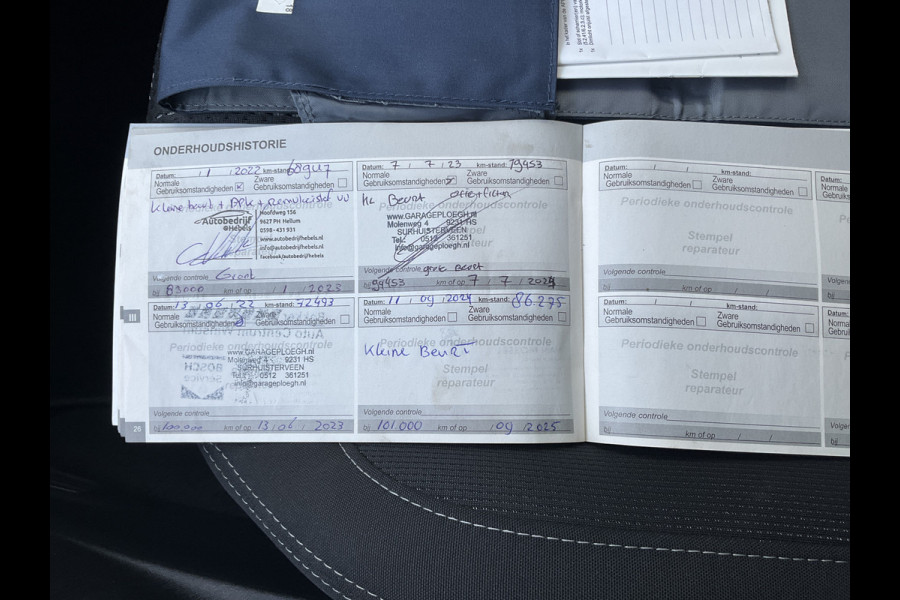 ONDERHOUDSHISTORIE
Datum: / 1 / 2022 km-stand:
Normale Gebruiksomstandigheden
Zware Gebruiksomstandigheden
kleine beurt + APK +
Autobedrijf
@Hebels
Hoofdweg 156
9627 PH Hellum
0598-431 931
www.autobedrijfhebels.nl
info@autobedrijfhebels.nl
facebook/autobedrijfhebels
Volgende controle Groot
bij 83000 km of op / 1 / 2023
Datum: 7 / 7 / 23 km-stand: 79453
Normale Gebruiksomstandigheden
Zware Gebruiksomstandigheden
KL Beurt oliefilter
Periodieke onderhoudscontrole
www.GARAGEPLOEGH.nl
Molenweg 4 9231 HS
SURHUISTERVEEN
Tel.: 0512 361251
info@garageploegh.nl
Volgende controle grote Beurt
bij 94453 km of op 7 / 7 / 2024
Datum: 13 / 06 / 22 km-stand: 72493
Normale Gebruiksomstandigheden
Zware Gebruiksomstandigheden
Periodieke onderhoudscontrole
www.GARAGEPLOEGH.nl
Molenweg 4 9231 HS
SURHUISTERVEEN
Tel.: 0512 361251
info@garageploegh.nl
Volgende controle
bij 100.000 km of op 13 / 06 / 2023
Datum: 11 / 09 / 2024 km-stand: 86.275
Normale Gebruiksomstandigheden
Zware Gebruiksomstandigheden
Periodieke onderhoudscontrole
Kleine Beurt
Stempel
reparateur
Volgende controle
bij 101.000 km of op / 09 / 2025
III
26
Datum: / / km-stand:
Normale Gebruiksomstandigheden
Zware Gebruiksomstandigheden
Periodieke onderhoudscontrole
Stempel
reparateur
Volgende controle
bij km of op / /
Datum: / / km-stand:
Normale Gebruiksomstandigheden
Zware Gebruiksomstandigheden
Periodieke onderhoudscontrole
Stempel
reparateur
Volgende controle
bij km of op / /